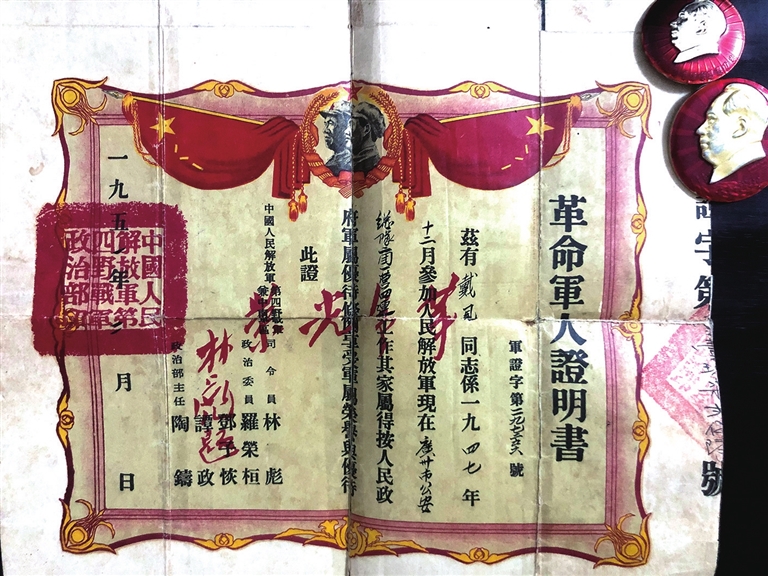 證字第
號
革命軍人證明書
軍證字第 號
茲有 戴 同志係一九四七年
十二月參加人民解放軍現在廣州市公安
總隊 工作其家屬得按人民政
府軍屬優待條例享受軍屬榮譽與優待
此證
光榮
中國人民解放軍第四野戰軍
兼中南軍區
司令員 林彪
政治委員 羅榮桓
鄧子恢
譚政
政治部主任 陶鑄
一九五 年 月 日
中國人民
解放軍第
四野戰軍
政治部